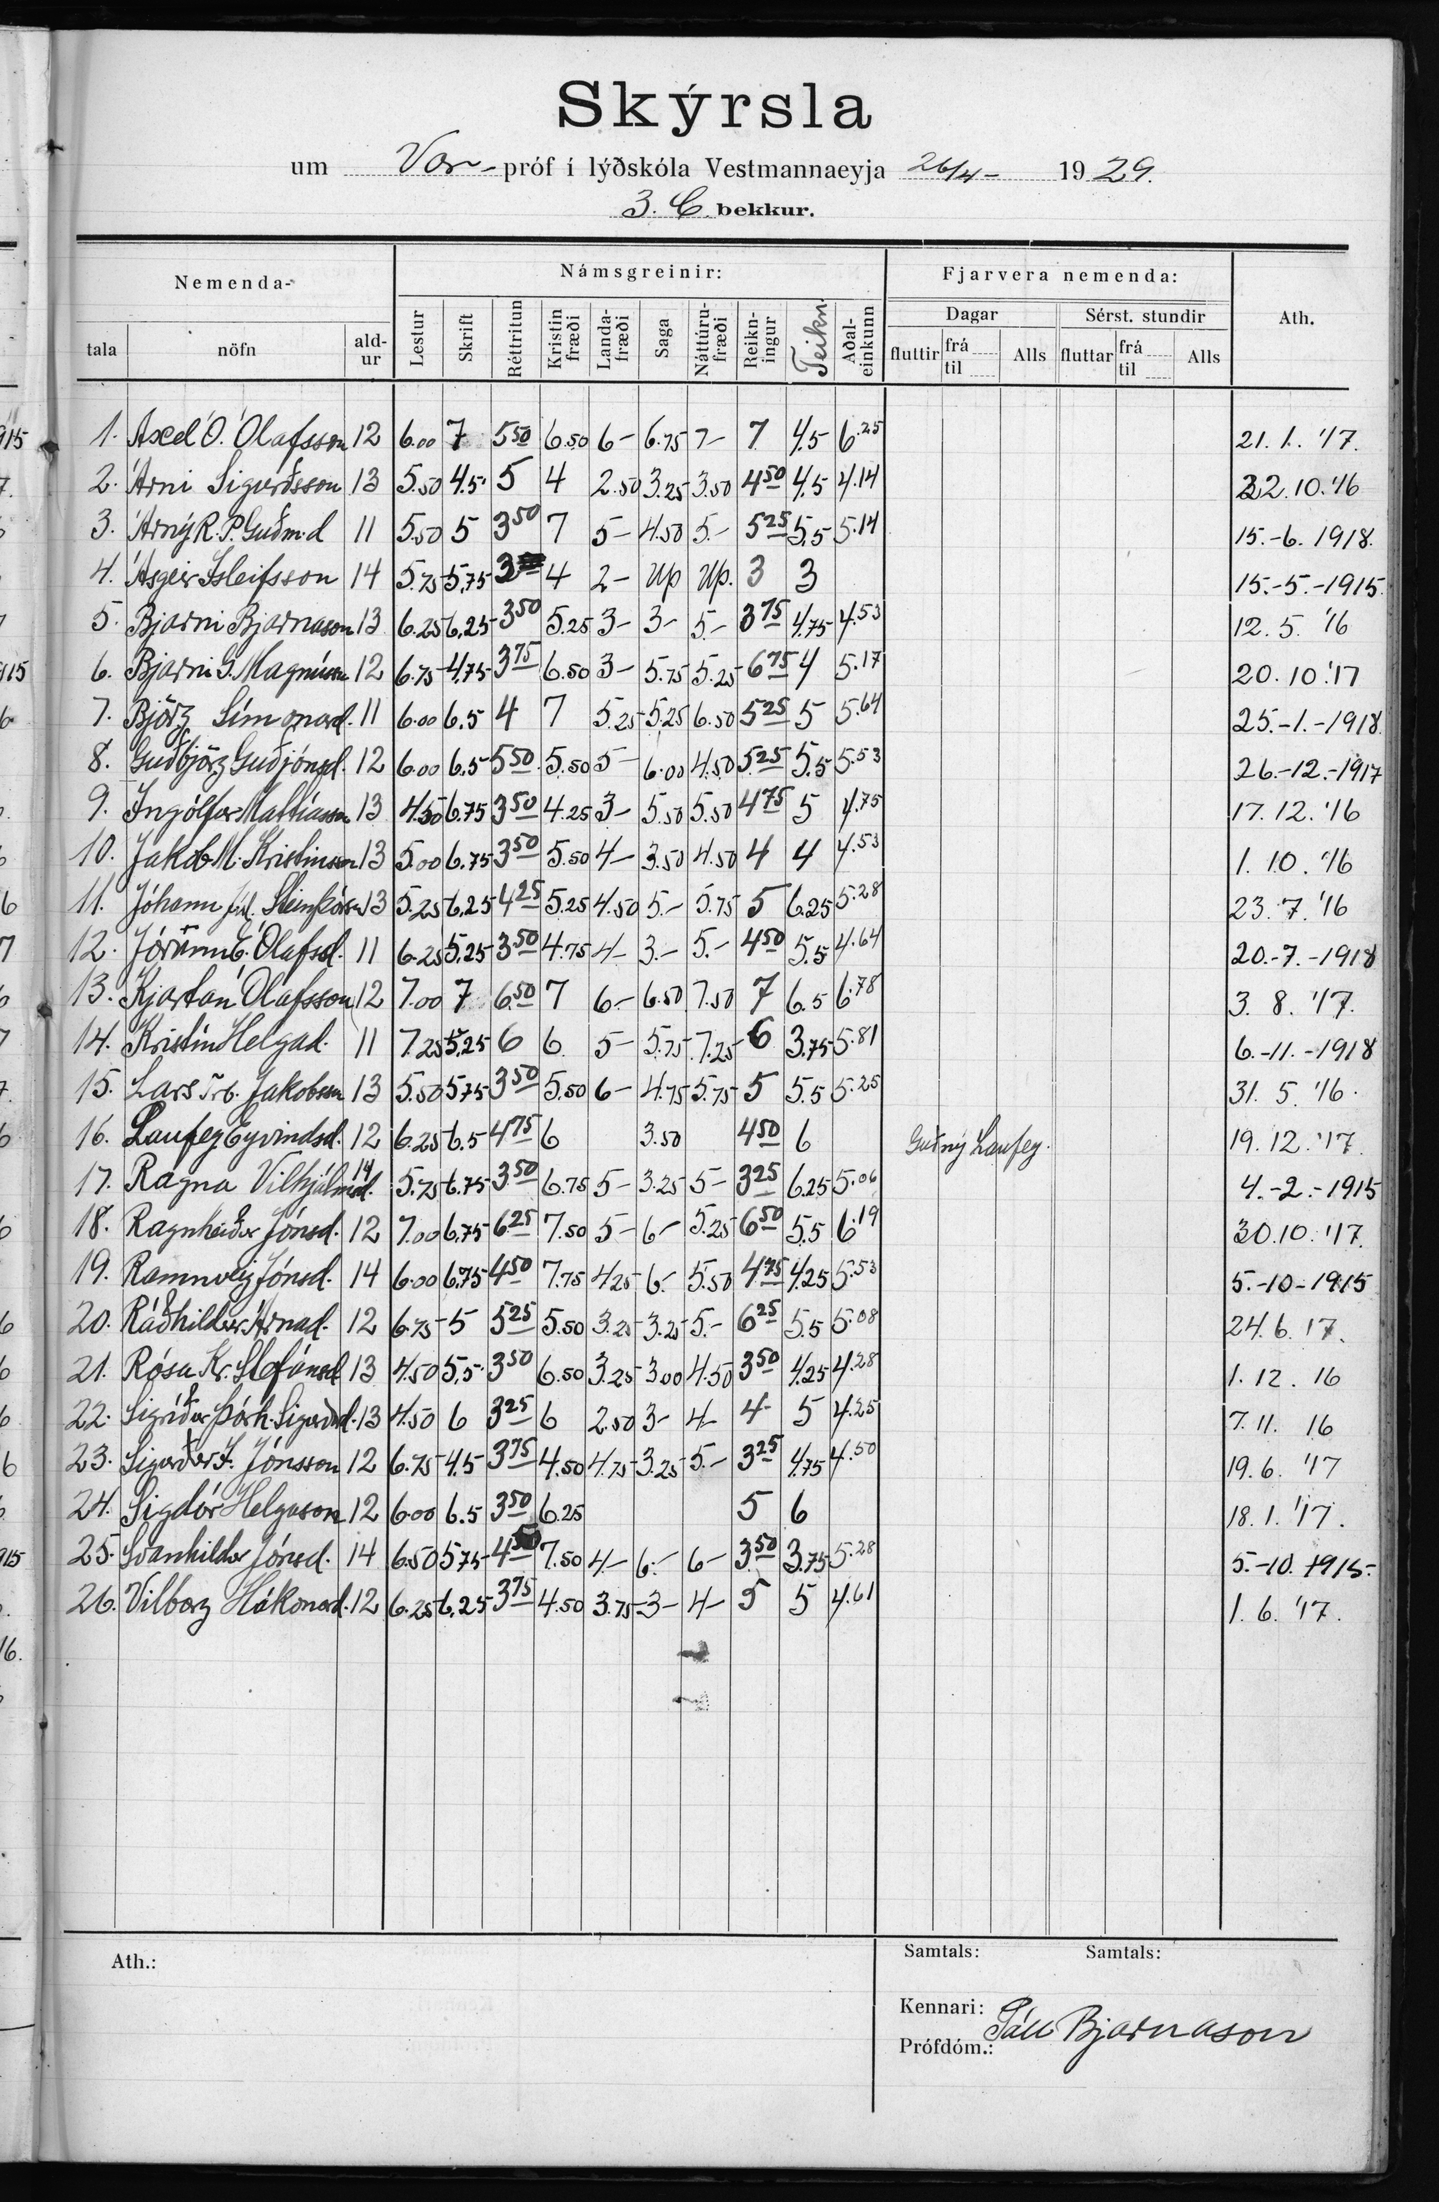 Skýrsla
um Vor- próf í lýðskóla Vestmannaeyja 26/4- 1929.
3. C. bekkur.
Nemenda- Námsgreinir: Fjarvera nemenda: Ath.
tala nöfn aldur Lestur Skrift Réttritun Kristin fræði Landafræði Saga Náttúrufræði Reikningur Teikn. Aðaleinkunn Dagar Sérst. stundir
fluttir frá til Alls fluttar frá til Alls
1. Axel Ó. Ólafsson 12 6.00 7 5.50 6.50 6- 6.75 7- 7 4.5 6.25 21. 1. '17.
2. Árni Sigurðsson 13 5.50 4.5 5 4 2.50 3.25 3.50 4.50 4.5 4.14 22.10.'16
3. Árný R. P. Guðm.d 11 5.50 5 3.50 7 5- 4.50 5.- 5.25 5.5 5.14 15.-6. 1918.
4. Ásgeir Ísleifsson 14 5.75 5.75 3 4 2- Up Up. 3 3 15.-5.-1915.
5. Bjarni Bjarnason 13 6.25 6.25 3.50 5.25 3- 3- 5.- 3.75 4.75 4.53 12. 5. '16
6. Bjarni G. Magnúss. 12 6.75 4.75 3.75 6.50 3- 5.75 5.25 6.75 4 5.17 20. 10.'17
7. Björg Símonard. 11 6.00 6.5 4 7 5.25 5.25 6.50 5.25 5 5.64 25.-1.-1918.
8. Guðbjörg Guðjónsd. 12 6.00 6.5 5.50 5.50 5- 6.00 4.50 5.25 5.5 5.53 26.-12.-1917
9. Ingólfur Mattíasson 13 4.50 6.75 3.50 4.25 3- 5.50 5.50 4.75 5 4.75 17. 12. '16
10. Jakob M. Kristinsson 13 5.00 6.75 3.50 5.50 4- 3.50 4.50 4 4 4.53 1. 10. '16
11. Jóhann Júl. Steinþórss. 13 5.25 6.25 4.25 5.25 4.50 5.- 5.75 5 6.25 5.28 23. 7. '16
12. Jórunn E. Ólafsd. 11 6.25 5.25 3.50 4.75 4- 3.- 5.- 4.50 5.5 4.64 20.-7.-1918
13. Kjartan Ólafsson 12 7.00 7 6.50 7 6- 6.50 7.50 7 6.5 6.78 3. 8. '17.
14. Kristín Helgad. 11 7.25 5.25 6 6 5- 5.75 7.25 6 3.75 5.81 6.-11.-1918
15. Lars Trb. Jakobsson 13 5.50 5.75 3.50 5.50 6- 4.75 5.75 5 5.5 5.25 31. 5. '16.
16. Laufey Eyvindsd. 12 6.25 6.5 4.75 6 3.50 4.50 6 Guðný Laufey. 19. 12. '17.
17. Ragna Vilhjálmsd. 14 5.75 6.75 3.50 6.75 5- 3.25 5- 3.25 6.25 5.06 4.-2.-1915
18. Ragnheiður Jónsd. 12 7.00 6.75 6.25 7.50 5- 6- 5.25 6.50 5.5 6.19 30.10. '17.
19. Rannveig Jónsd. 14 6.00 6.75 4.50 7.75 4.25 6.- 5.50 4.75 4.25 5.53 5.-10-1915
20. Ráðhildur Árnad. 12 6.75 5 5.25 5.50 3.25 3.25 5.- 6.25 5.5 5.08 24. 6. 17.
21. Rósa Kr. Stefánsd 13 4.50 5.5 3.50 6.50 3.25 3.00 4.50 3.50 4.25 4.28 1. 12. 16
22. Sigríður Þórh. Sigurðard. 13 4.50 6 3.25 6 2.50 3- 4- 4- 5 4.25 7. 11. 16
23. Sigurður F. Jónsson 12 6.75 4.5 3.75 4.50 4.75 3.25 5.- 3.25 4.75 4.50 19. 6. '17
24. Sigdór Helgason 12 6.00 6.5 3.50 6.25 5 6 18. 1. '17.
25. Svanhildur Jónsd. 14 6.50 5.75 4.50 7.50 4- 6.- 6- 3.50 3.75 5.28 5.-10. 1915.-
26. Vilborg Hákonard. 12 6.25 6.25 3.75 4.50 3.75 3- 4- 5 5 4.61 1. 6. '17.
Ath.: Samtals: Samtals:
Kennari: Páll Bjarnason
Prófdóm.: